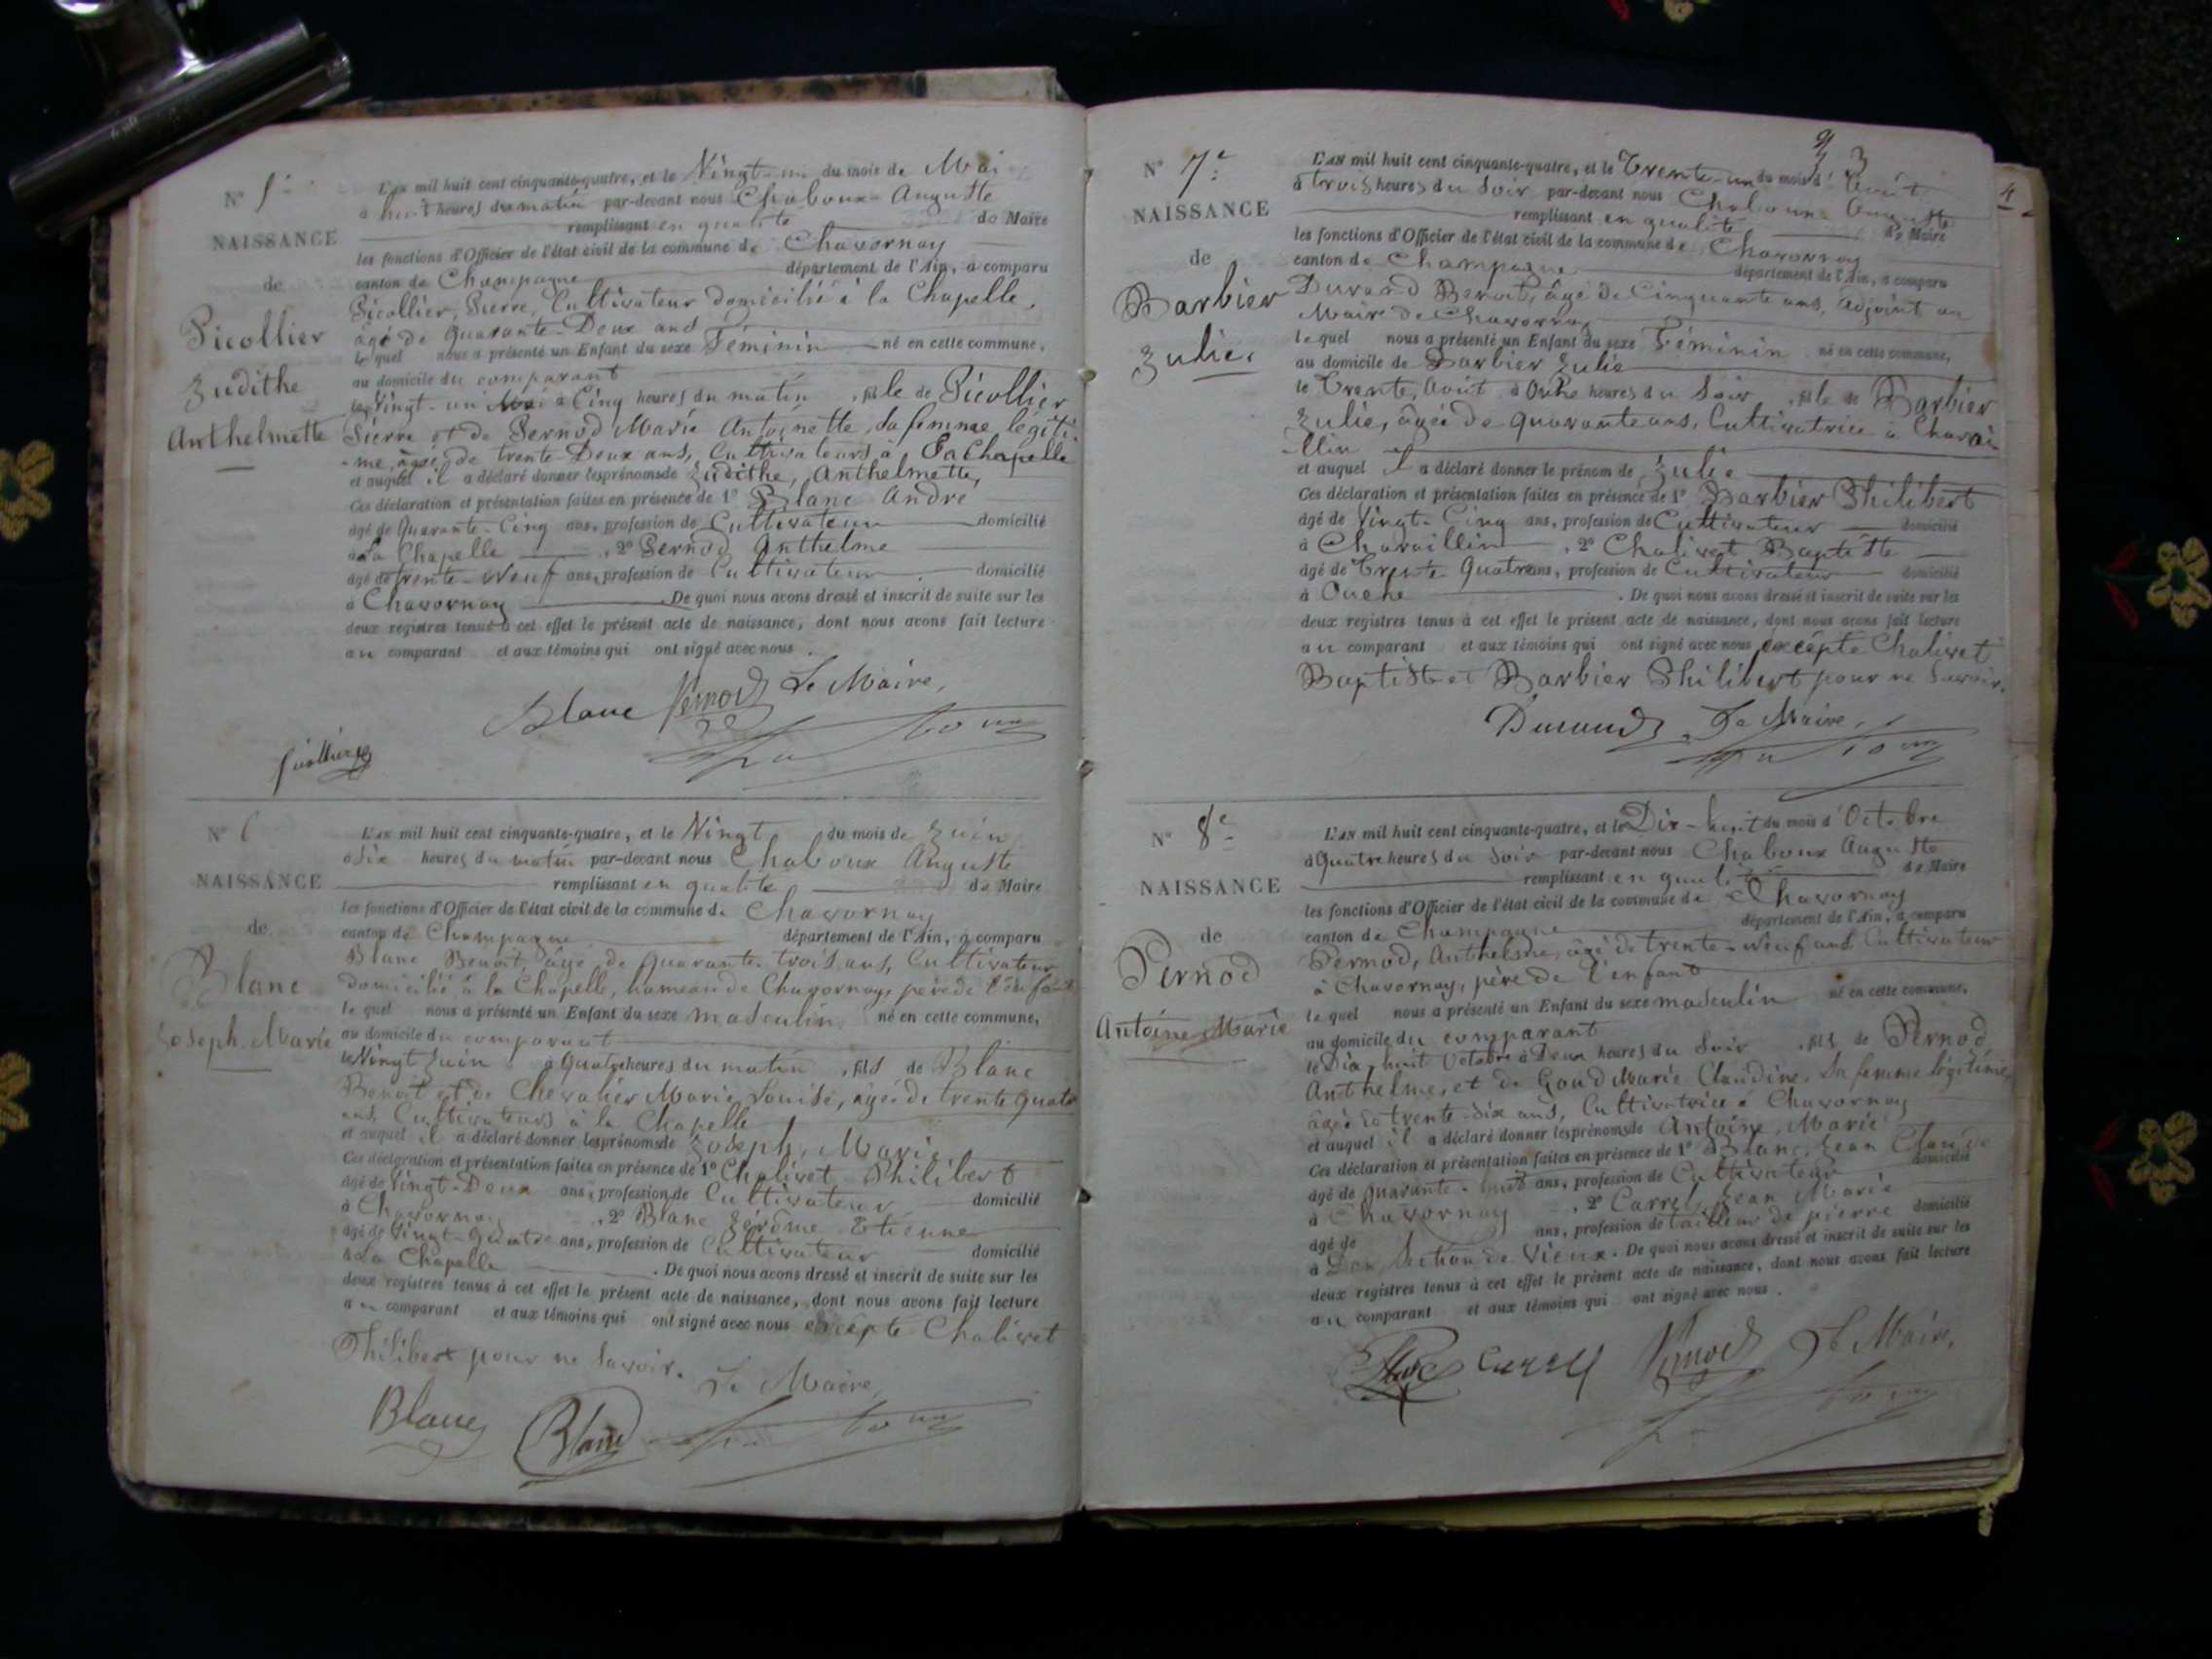 N° 5e
NAISSANCE
de
Picollier
Judithe
Anthelmette
L'AN mil huit cent cinquante-quatre, et le Vingt-un du mois de Mai
à huit heures du matin par-devant nous Chaboux Auguste
remplissant en qualité de Maire
les fonctions d'Officier de l'état civil de la commune de Chavornay
canton de Champagne département de l'Ain, a comparu
Picollier, Pierre, Cultivateur domicilié à la Chapelle,
âgé de quarante-Deux ans
lequel nous a présenté un Enfant du sexe Féminin né en cette commune,
au domicile du comparant
le Vingt-un Mai à Cinq heures du matin, fille de Picollier
Pierre et de Pernod Marie Antoinette, sa femme légiti-
-me, âgée de trente Deux ans, Cultivateurs à La Chapelle
et auquel il a déclaré donner les prénoms de Judithe, Anthelmette,
Ces déclaration et présentation faites en présence de 1° Blanc André
âgé de Quarante-Cinq ans, profession de Cultivateur domicilié
à La Chapelle, 2° Pernod Anthelme
âgé de trente-Neuf ans, profession de Cultivateur domicilié
à Chavornay. De quoi nous avons dressé et inscrit de suite sur les
deux registres tenus à cet effet le présent acte de naissance, dont nous avons fait lecture
au comparant et aux témoins qui ont signé avec nous.
Blanc Pernod Le Maire,
N° 6
NAISSANCE
de
Blanc
Joseph Marie
L'AN mil huit cent cinquante-quatre, et le Vingt du mois de Juin
à Six heures du matin par-devant nous Chaboux Auguste
remplissant en qualité de Maire
les fonctions d'Officier de l'état civil de la commune de Chavornay
canton de Champagne département de l'Ain, a comparu
Blanc Benoît, âgé de Quarante-trois ans, Cultivateur
domicilié à la Chapelle, hameau de Chavornay, père de l'enfant
lequel nous a présenté un Enfant du sexe masculin né en cette commune,
au domicile du comparant
le Vingt Juin à Quatre heures du matin, fils de Blanc
Benoit et de Chevalier Marie Louise, âgée de trente quatre
ans, Cultivateurs à la Chapelle
et auquel il a déclaré donner les prénoms de Joseph, Marie
Ces déclaration et présentation faites en présence de 1° Chalivet Philibert
âgé de Vingt-Deux ans, profession de Cultivateur domicilié
à Chavornay, 2° Blanc Jérôme Etienne
âgé de Vingt-Quatre ans, profession de Cultivateur domicilié
à La Chapelle. De quoi nous avons dressé et inscrit de suite sur les
deux registres tenus à cet effet le présent acte de naissance, dont nous avons fait lecture
au comparant et aux témoins qui ont signé avec nous excepté Chalivet
Philibert pour ne Savoir. Le Maire,
Blanc Blanc
3
N° 7e
NAISSANCE
de
Barbier
Julie.
L'AN mil huit cent cinquante-quatre, et le Trente-un du mois d'Août
à trois heures du Soir par-devant nous Chaboux Auguste
remplissant en qualité de Maire
les fonctions d'Officier de l'état civil de la commune de Chavornay
canton de Champagne département de l'Ain, a comparu
Durand Benoit, âgé de Cinquante ans, adjoint au
Maire de Chavornay
lequel nous a présenté un Enfant du sexe Féminin né en cette commune,
au domicile de Barbier Julie
le Trente Août à Onze heures du Soir, fille de Barbier
Julie, âgée de quarante ans, Cultivatrice à Charvai
-llin
et auquel il a déclaré donner le prénom de Julie
Ces déclaration et présentation faites en présence de 1° Barbier Philibert
âgé de Vingt-Cinq ans, profession de Cultivateur domicilié
à Charvaillin, 2° Chalivet Baptiste
âgé de Trente Quatre ans, profession de Cultivateur domicilié
à Ouche. De quoi nous avons dressé et inscrit de suite sur les
deux registres tenus à cet effet le présent acte de naissance, dont nous avons fait lecture
au comparant et aux témoins qui ont signé avec nous excépté Chalivet
Baptiste et Barbier Philibert pour ne Savoir.
Durand Le Maire,
N° 8e
NAISSANCE
de
Pernod
Antoine Marie
L'AN mil huit cent cinquante-quatre, et le Dix-huit du mois d'Octobre
à Quatre heures du Soir par-devant nous Chaboux Auguste
remplissant en qualité de Maire
les fonctions d'Officier de l'état civil de la commune de Chavornay
canton de Champagne département de l'Ain, a comparu
Pernod, Anthelme, âgé de trente-Neuf ans Cultivateur
à Chavornay, père de l'enfant
lequel nous a présenté un Enfant du sexe masculin né en cette commune,
au domicile du comparant
le Dix-huit Octobre à Deux heures du Soir, fils de Pernod
Anthelme, et de Goud Marie Claudine, Sa femme légitime,
âgée de trente-six ans, Cultivatrice à Chavornay
et auquel il a déclaré donner les prénoms de Antoine, Marie
Ces déclaration et présentation faites en présence de 1° Blanc, Jean Claude
âgé de quarante-huit ans, profession de Cultivateur domicilié
à Chavornay, 2° Carrel, Jean Marie
âgé de ans, profession de tailleur de pierre domicilié
à Don, Section de Vieux. De quoi nous avons dressé et inscrit de suite sur les
deux registres tenus à cet effet le présent acte de naissance, dont nous avons fait lecture
au comparant et aux témoins qui ont signé avec nous.
Blanc Carrel Pernod Le Maire,
4